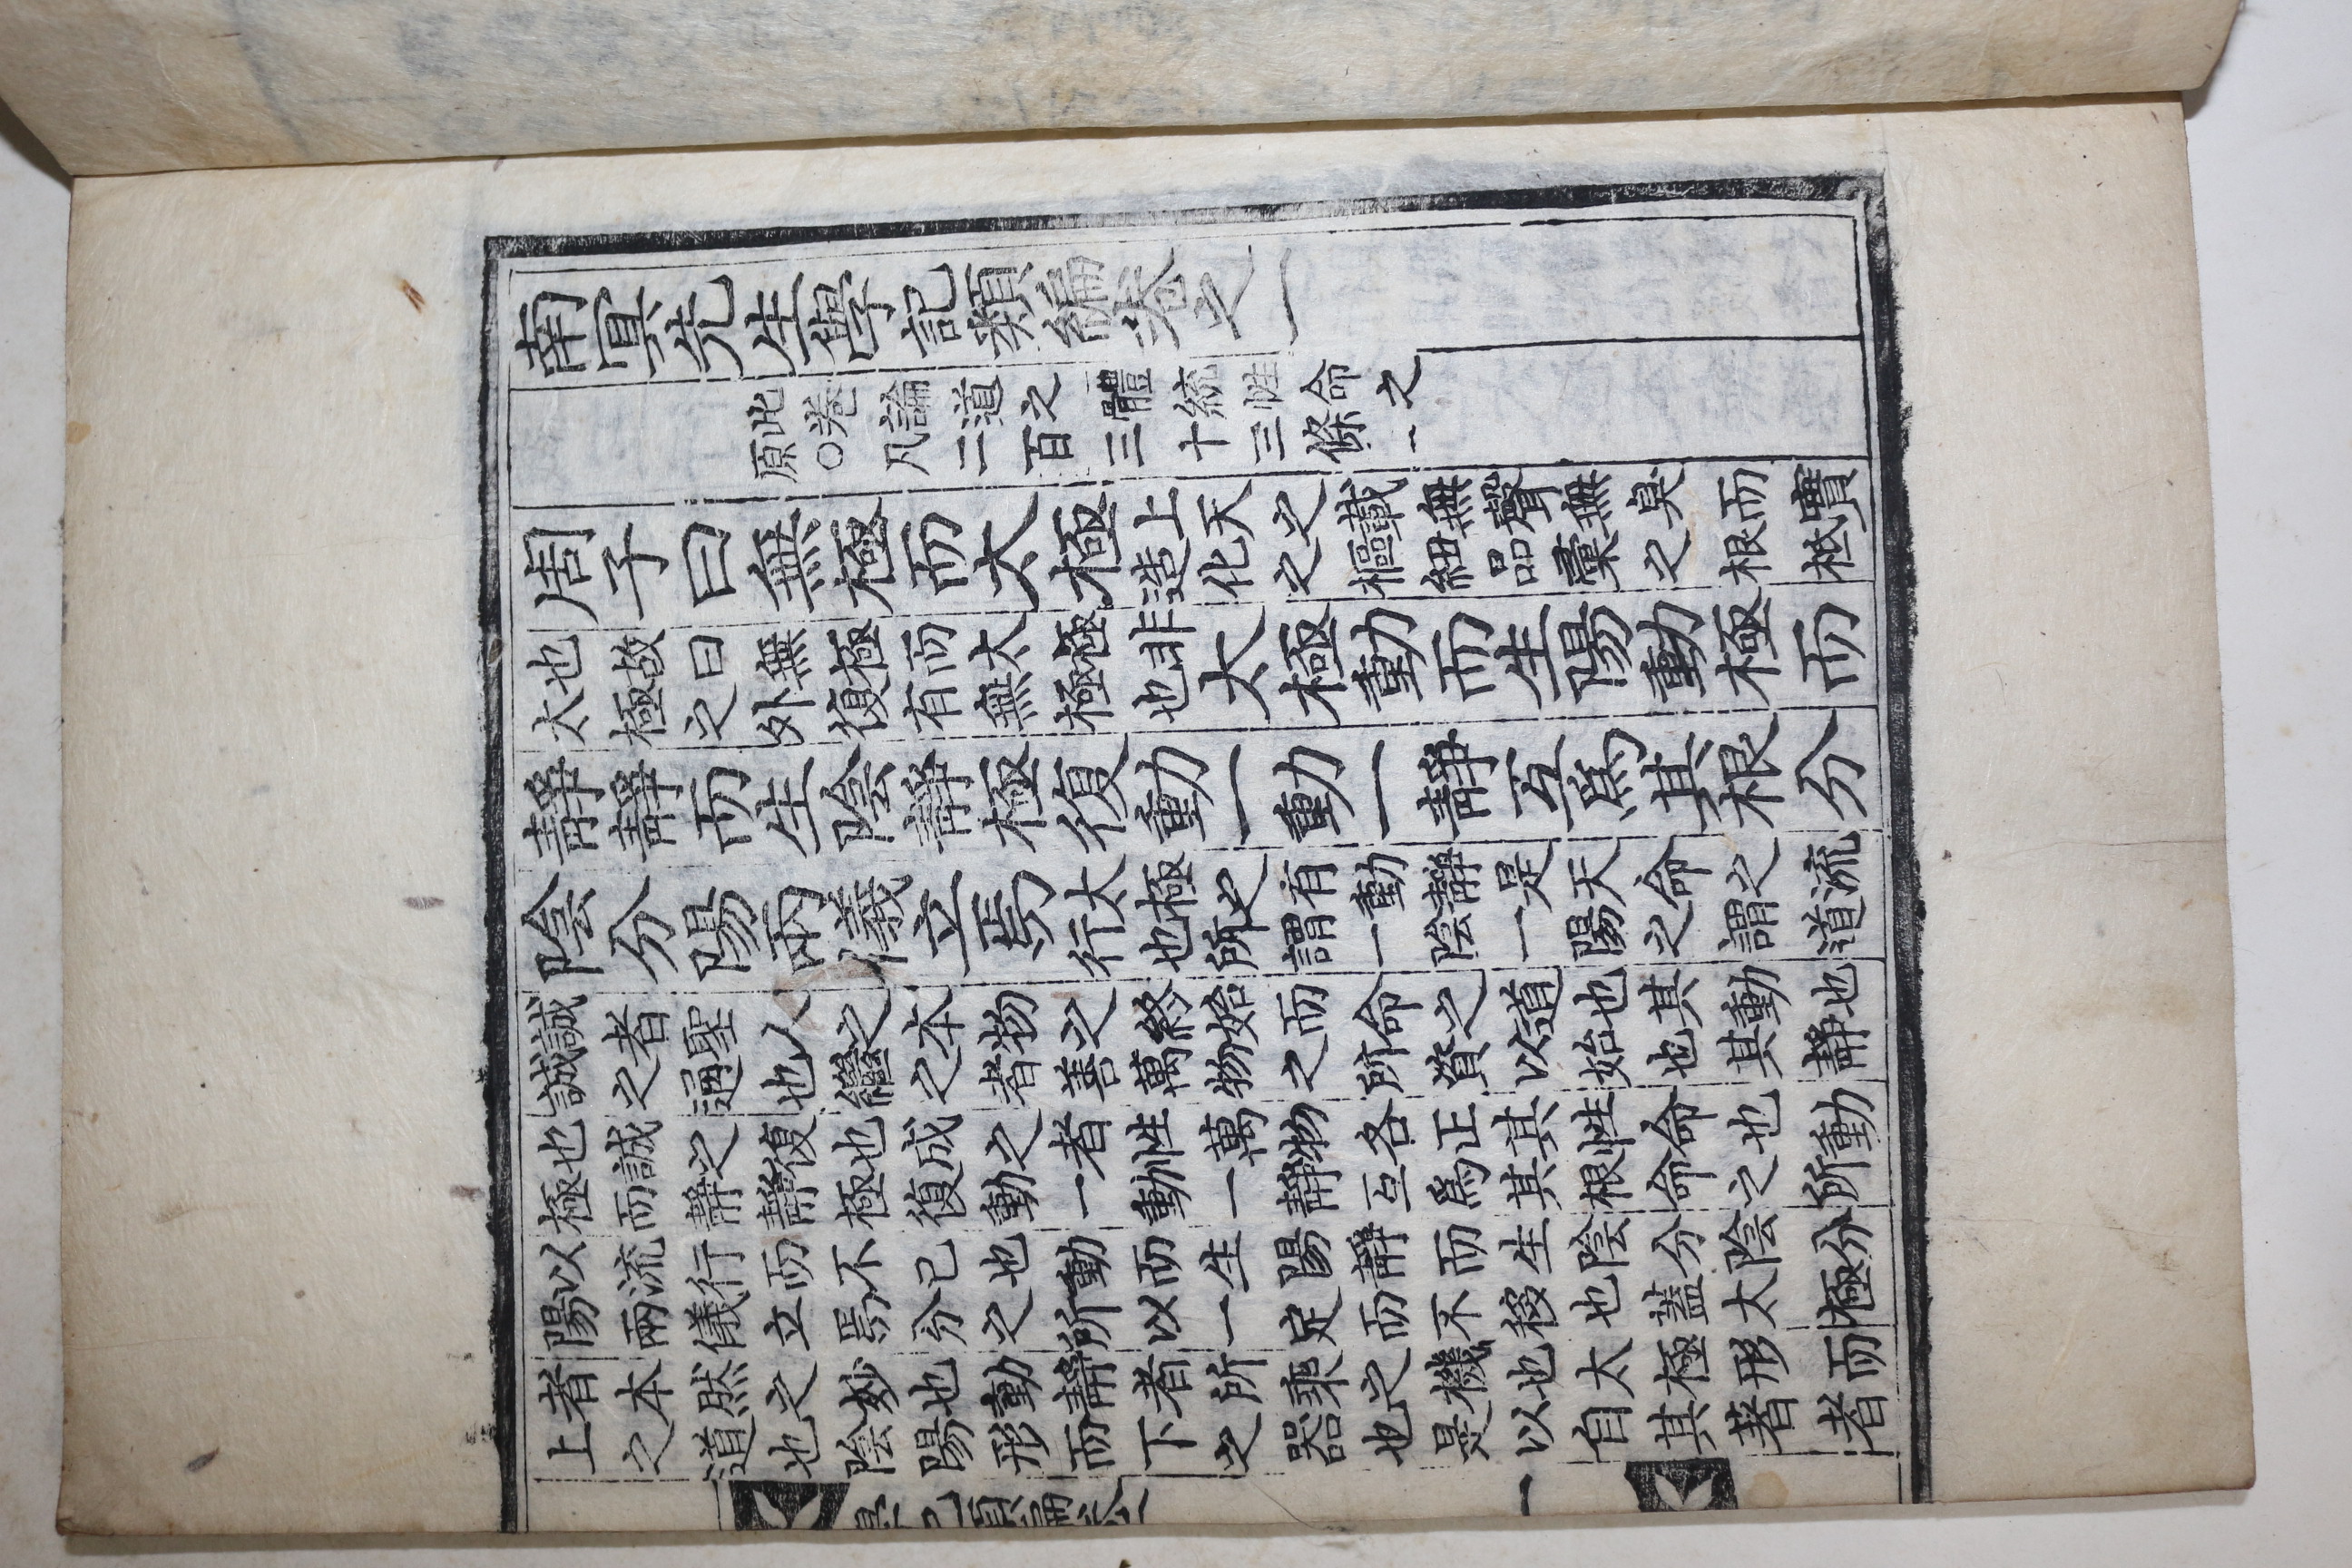 南冥先生學記類編卷之一
此卷論道之體統性命之
原○凡二百三十三條
周子曰無極而太極上天之載無聲無臭而實造化之樞紐品彙之根柢
也故曰無極而太極非太極之外復有無極也太極動而生陽動極而
靜靜而生陰靜極復動一動一靜互爲其根分
陰分陽兩儀立焉太極之有動靜是天命之流行也所謂一陰一陽之謂道
誠者聖人之本物之終始而命之道也其動也
誠之通也繼之者善萬物之所資以始也其靜
也誠之復也成之者性萬物各正其性命也動
極而靜靜極復動一動一靜互爲其根命之所
以流行而不已也動而生陽靜而生陰分陰分
陽兩儀立焉分之所以一定而不移也蓋太極
者本然之妙也動靜者所乘之機也太極形而
上之道也陰陽形而下之器也是以自其著者
學記類編
一